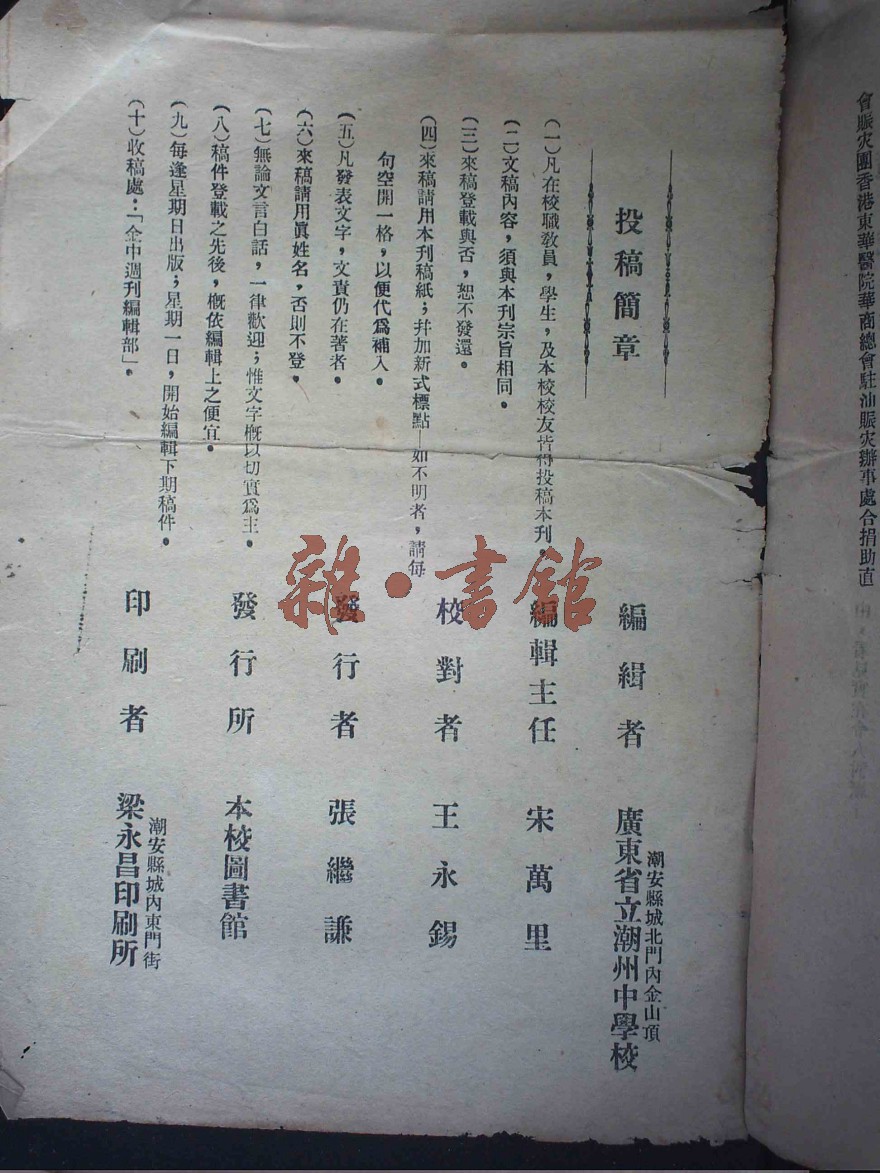 會賑灾團香港東華醫院華商總會駐汕賑灾辦事處合捐助直
投稿簡章
(一)凡在校職敎員，學生，及本校校友皆得投稿本刊。
(二)文稿內容，須與本刊宗旨相同。
(三)來稿登載與否，恕不發還。
(四)來稿請用本刊稿紙；幷加新式標點—如不明者，請每
句空開一格，以便代爲補入。
(五)凡發表文字，文責仍在著者。
(六)來稿請用眞姓名，否則不登。
(七)無論文言白話，一律歡迎；惟文字槪以切實爲主。
(八)稿件登載之先後，槪依編輯上之便宜。
(九)每逢星期日出版；星期一日，開始編輯下期稿件。
(十)收稿處：「金中週刊編輯部」。
潮安縣城北門內金山頂
編緝者 廣東省立潮州中學校
編輯主任 宋萬里
校對者 王永錫
發行者 張繼謙
發行所 本校圖書館
潮安縣城內東門街
印刷者 梁永昌印刷所
雜·書館